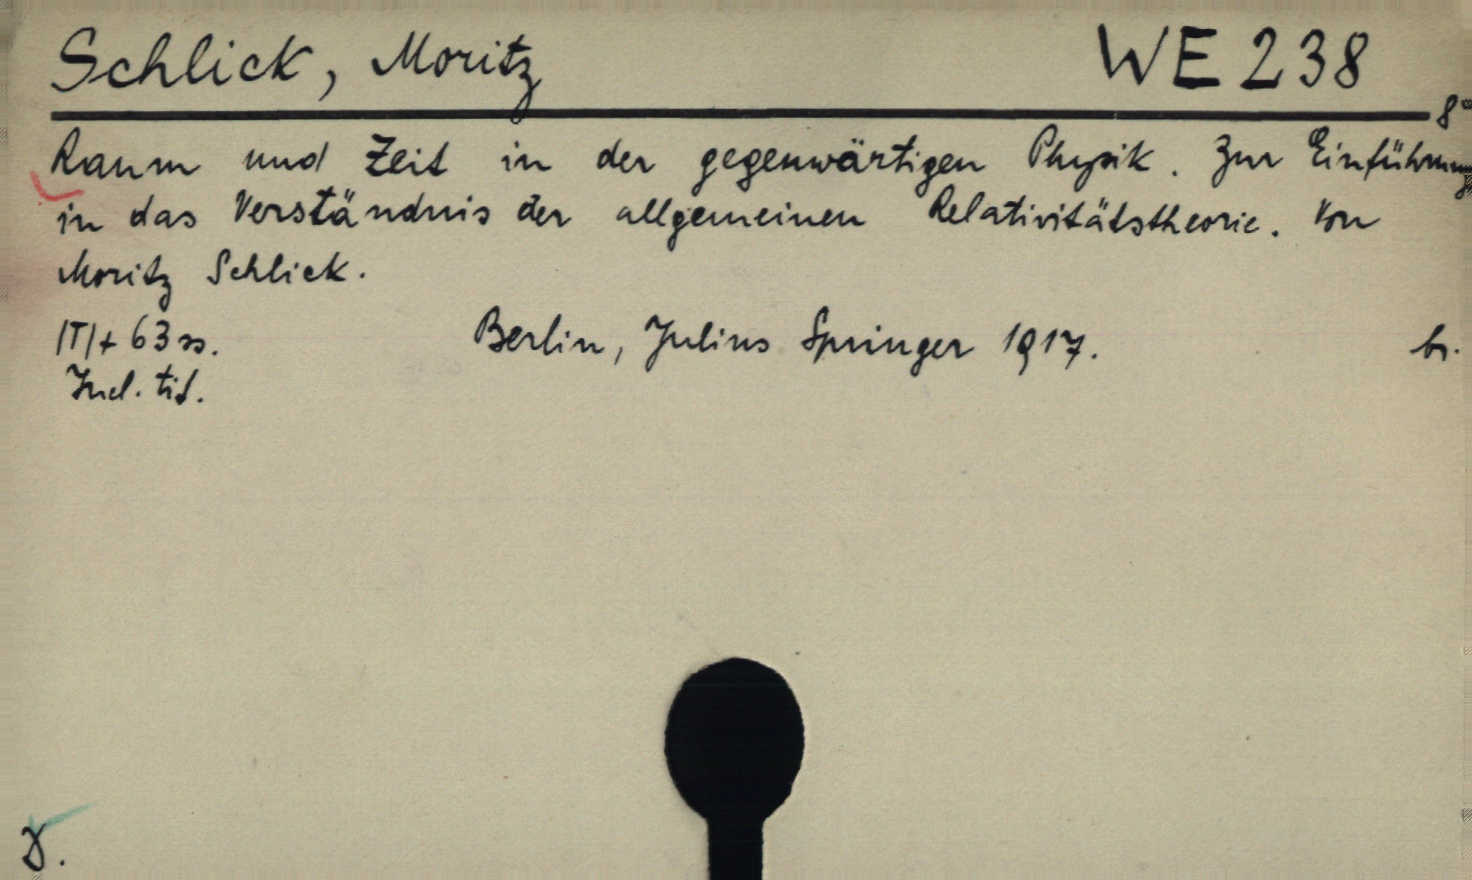 Schlick, Moritz WE 238
8°
Raum und Zeit in der gegenwärtigen Physik. Zur Einführung
in das Verständnis der allgemeinen Relativitätstheorie. Von
Moritz Schlick.
|T|+ 63 ss. Berlin, Julius Springer 1917. br.
Incl. tit.